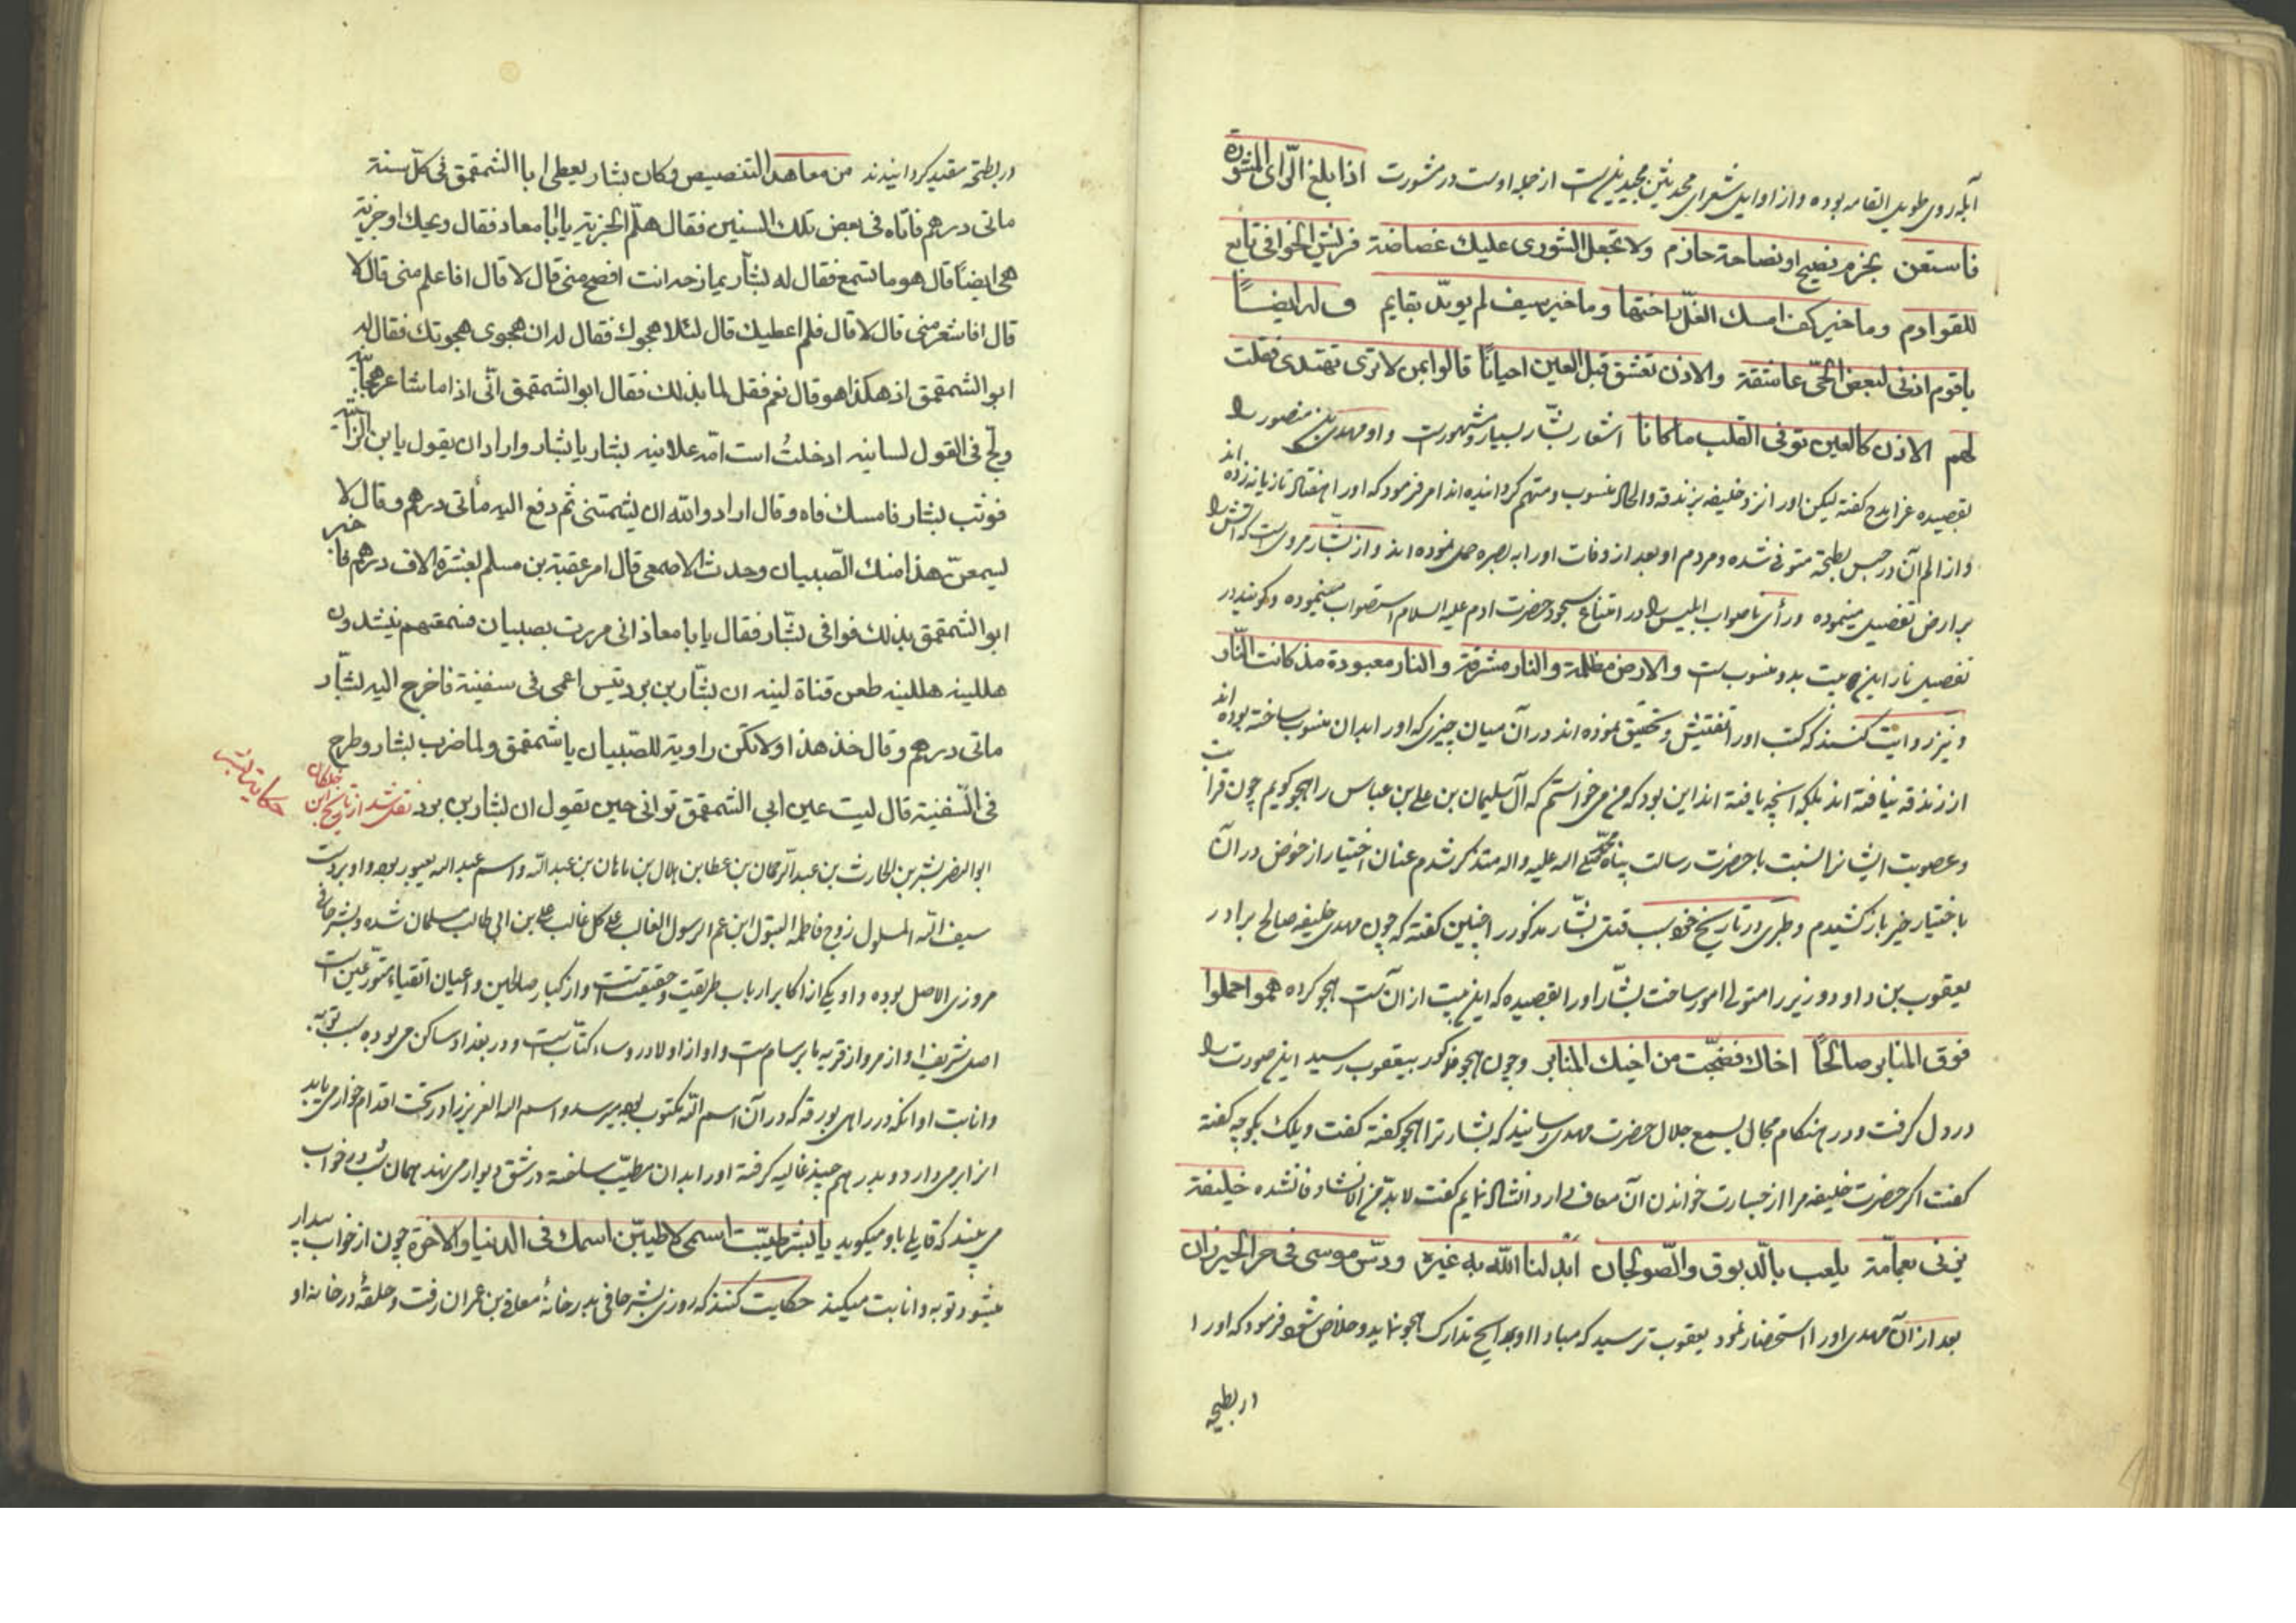 آبله روی طویل القامه بوده و از اوایل شعرای محدثین مجیدین است از جمله اوست در مشورت اذا بلغ الرّای المشورة
فاستعن بحزم نصیح او نصاحة حازم ولا تجعل الشوری علیك غضاضة فریش الخوافی تابع
للقوادم وما خیر کف امسك الغلّ اختها وما خیر سیف لم یویّد بقایم وله ایضاً
یا قوم اذنی لبعض الحیّ عاشقة والاذن تعشق قبل العین احیاناً قالوا بمن لا تری تهتدی فقلت
لهم الاذن کالعین توفی القلب ما کانا اشعار بشّار بسیار و مشهورست و او مهدی بن منصور را
بقصیده غرا مدح کفته لیکن اورا نزد خلیفه بزندقه والحاد منسوب و متهم کردانیده اند امر فرمود که اورا هفتاد تازیانه زده اند
و از الم آن در حبس بطیحه متوفی شده و مردم او بعد از وفات اورا به بصره حمل نموده اند و از بشّار مرویست که آتش را
بر ارض تفضیل مینموده و رأی ناصواب ابلیس را در امتناع سجود حضرت ادم علیه السلام استصواب مینموده و کویند در
تفضیل نار این بیت بدو منسوب ست والارض مظلمة والنار مشرقة والنار معبودة مذ کانت النّار
و نیز روایت کنند که کتب اورا تفتیش و تحقیق نموده اند در آن میان چیزی که اورا بدان منسوب ساخته بوده اند
از زندقه نیافته اند بلکه آنچه یافته اند این بود که من می خواستم که آل سلیمان بن علی بن عباس را هجو کویم چون قرابت
و عصوبت ایشانرا نسبت با حضرت رسالت پناه محمّد صلّی الله علیه واله متذکر شدم عنان اختیار از خوض در آن
باختیار خیر باز کشیدم و طبری در تاریخ خود سبب قتل بشّار مذکور را چنین کفته که چون مهدی خلیفه صالح برادر
یعقوب بن داود وزیر را متولی امور ساخت بشّار اورا بقصیده که این بیت از آن ست هجو کرد هموا حملوا
فوق المنابر صالحاً اخاك فضجّت من اخیك المنابر و چون هجو مذکور بیعقوب رسید این صورت را
در دل کرفت و در هنکام مجال بسمع جلال حضرت مهدی رسانید که بشار ترا هجو کفته کفت ویلك بکو چه کفته
کفت اکر حضرت خلیفه مرا از جسارت خواندن آن معاف دارد انشاد نمایم کفت لا بدّ من الانشاد فانشده خلیفة
یزنی بعمّاته یلعب بالدّبوق والصّولجان أبدلنا الله به غیره ودسّ موسی فی حر الخیزران
بعد از آن مهدی اورا استحضار نمود یعقوب ترسید که مبادا او بمدایح تدارک هجو نماید و خلاص شود فرمود که اورا
در بطیحه
در بطیحه مقید کردانیدند من معاهد التنصیص وکان بشار یعطی ابا الشمقمق فی کلّ سنة
مائتی درهم فاتاه فی بعض تلك السنین فقال هلمّ الجزیة یا ابا معاد فقال ویحك اوجزیة
هی ایضاً قال هو ما تسمع فقال له بشّار یمازحه انت افصح منی قال لا قال افاعلم منی قال لا
قال افاشعر منی قال لا قال فلم اعطیك قال لئلا اهجوك فقال له ان هجوتنی هجوتك فقال له
ابو الشمقمق اذ هکذا هو قال نعم فقل لما بذلك فقال ابو الشمقمق انّی اذا ما شاعر هجانیه
ولجّ فی القول لسانیه ادخلتُ است امّه علانیه بشار یا بشار واراد ان یقول یا بن الزّانیه
فوثب بشار فامسك فاه وقال اراد والله ان یشتمنی ثم دفع الیه مأتی درهم وقال لا
یسمعنّ هذا منك الصّبیان وحدث الاصمعی قال امر عقبة بن مسلم لبشار بعشرة الاف درهم فاخبر
ابو الشمقمق بذلك فوافی بشّار فقال یا ابا معاذ انی مررت بصبیان فسمعتهم ینشدون
هللینه هللینه طعن قثاة لتینه ان بشّار بن برد تیس اعمی فی سفینة فاخرج الیه بشّار
مائتی درهم وقال خذ هذا ولا تکن راویة للصّبیان یا شمقمق ولما ضرب بشار وطرح
فی السّفینة قال لیت عین ابی الشمقمق ترانی حین یقول ان بشار بن برد نقل شد از تاریخ ابن خلکان
حکایت بشر
ابو النصر بشر بن الحارث بن عبد الرحمان بن عطا بن هلال بن ماهان بن عبد الله و اسم عبد الله یعبور بود و او بر دست
سیف الله المسلول زوج فاطمه البتول ابن عم الرسول الغالب علی کل غالب علی بن ابی طالب مسلمان شده و بشر حافی
مروزی الاصل بوده و او یکی از اکابر ارباب طریقت و حقیقت است و از کبار صالحین و اعیان اتقیاء متورّعین است
اصل شریف او از مرو از قریه مابرسام ست و او از اولاد روساء کتّاب ست و در بغداد ساکن می بوده سبب توبه
وانابت او انکه در راهی بورقه که در آن اسم الله مکتوب بود میرسد و اسم الله العزیز را در تحت اقدام خوار می یابد
انرا برمی دارد و بدرهم چند غالیه کرفته اورا بدان مطیّب ساخته در شق دیوار می نهد همان شب در خواب
می بیند که قایلی باو میکوید یا بشر طیّبت اسمی لاطیّبنّ اسمك فی الدنیا والاخرة چون از خواب بیدار
میشود توبه و انابت میکند حکایت کنند که روزی بشر حافی بدر خانهٔ معافی بن عمران رفت و حلقهٔ در خانه او